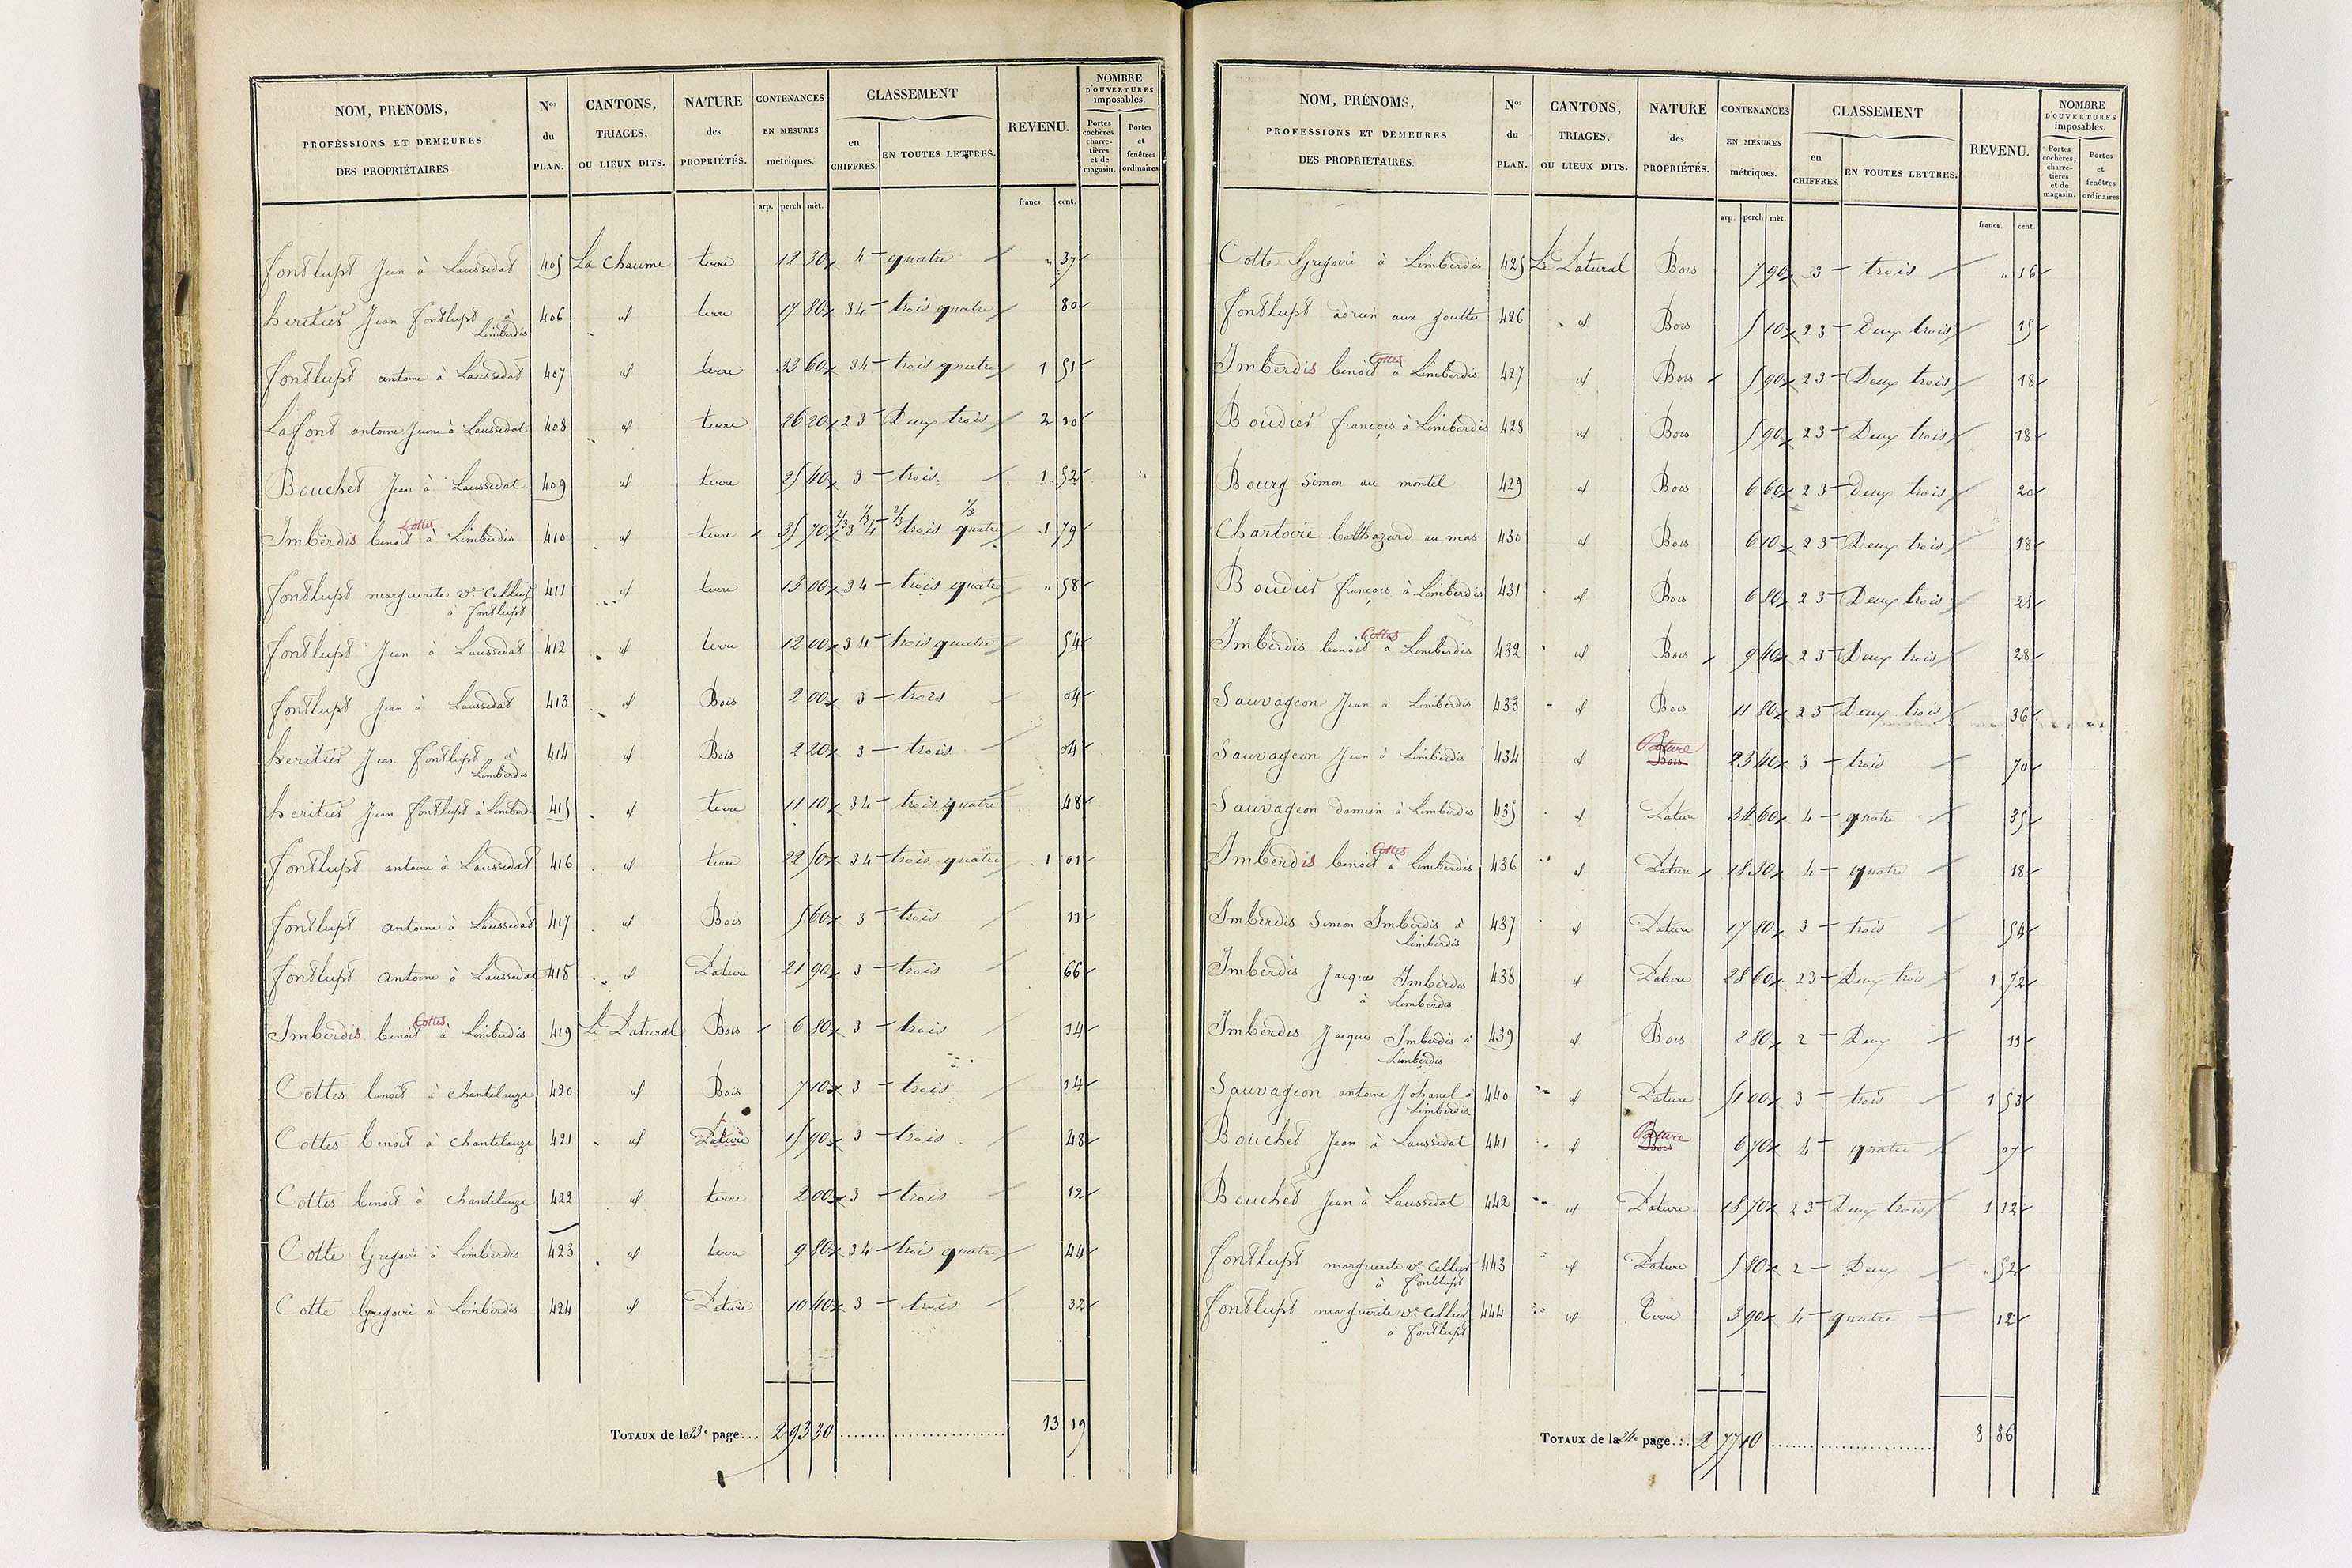 NOM, PRÉNOMS, PROFESSIONS ET DEMEURES DES PROPRIÉTAIRES. Nos du PLAN. CANTONS, TRIAGES, OU LIEUX DITS. NATURE des PROPRIÉTÉS. CONTENANCES EN MESURES métriques. CLASSEMENT en CHIFFRES. EN TOUTES LETTRES. REVENU. NOMBRE D'OUVERTURES imposables. Portes cochères charretières et de magasin. Portes et fenêtres ordinaires
arp. perch mèt. francs. cent.
fontlupt Jean à Laussedat 405 La Chaume terre 12 30 4 quatre " 37
heritier Jean fontlupt à Limberdis 406 id terre 17 80 34 trois quatre 80
fontlupt antoine à Laussedat 407 id terre 33 60 34 trois quatre 1 51
Lafont antoine Jeune à Laussedat 408 id terre 26 20 23 Deux trois 2 10
Bouchet Jean à Laussedat 409 id terre 25 40 3 trois 1 52
Imberdis benoit Cottes à Limberdis 410 id terre 35 70 2/3 3 1/3 4 2/3 trois 1/3 quatre 1 79
fontlupt marguerite ve Cellier à fontlupt 411 id terre 13 00 34 trois quatre " 58
fontlupt Jean à Laussedat 412 id terre 12 00 34 trois quatre 54
fontlupt Jean à Laussedat 413 id Bois 2 00 3 trois 04
heritier Jean fontlupt à Limberdis 414 id Bois 2 20 3 trois 04
heritier Jean fontlupt à Limberdi 415 id terre 11 10 34 trois quatre 48
fontlupt antoine à Laussedat 416 id terre 22 50 34 trois quatre 1 01
fontlupt antoine à Laussedat 417 id Bois 5 60 3 trois 11
fontlupt antoine à Laussedat 418 id Pature 21 90 3 trois 66
Imberdis benoit Cottes à Limberdis 419 Le Patural Bois 6 80 3 trois 14
Cottes benoit à chantelauze 420 id Bois 7 10 3 trois 14
Cottes benoit à chantelauze 421 id Pature 15 90 3 trois 48
Cottes benoit à chantelauze 422 id terre 2 00 3 trois 12
Cotte Gregoire à Limberdis 423 id terre 9 80 34 trois quatre 44
Cotte Gregoire à Limberdis 424 id Pature 10 40 3 trois 32
TOTAUX de la 23e page... 2 93 30 13 19
NOM, PRÉNOMS, PROFESSIONS ET DEMEURES DES PROPRIÉTAIRES. Nos du PLAN. CANTONS, TRIAGES, OU LIEUX DITS. NATURE des PROPRIÉTÉS. CONTENANCES EN MESURES métriques. CLASSEMENT en CHIFFRES. EN TOUTES LETTRES. REVENU. NOMBRE D'OUVERTURES imposables. Portes cochères, charretières et de magasin. Portes et fenêtres ordinaires
arp. perch mèt. francs. cent.
Cotte Gregoire à Limberdis 425 Le Patural Bois 7 90 3 trois " 16
fontlupt adrien aux gouttes 426 id Bois 5 10 23 Deux trois 15
Imberdis benoit Cottes à Limberdis 427 id Bois 5 90 23 Deux trois 18
Boudier françois à Limberdis 428 id Bois 5 90 23 Deux trois 18
Bourg Simon au montel 429 id Bois 6 60 23 Deux trois 20
Chartoire balthazard au mas 430 id Bois 6 10 23 Deux trois 18
Boudier françois à Limberdis 431 id Bois 6 80 23 Deux trois 21
Imberdis benoit Cottes à Limberdis 432 id Bois 9 40 23 Deux trois 28
Sauvageon Jean à Limberdis 433 id Bois 11 80 23 Deux trois 36
Sauvageon Jean à Limberdis 434 id Pature Bois 23 40 3 trois 70
Sauvageon damien à Limberdis 435 id Pature 34 60 4 quatre 35
Imberdis benoit Cottes à Limberdis 436 id Pature 18 30 4 quatre 18
Imberdis Simon Imberdis à Limberdis 437 id Pature 17 80 3 trois 54
Imberdis Jacques Imberdis à Limberdis 438 id Pature 28 60 23 Deux trois 1 72
Imberdis Jacques Imberdis à Limberdis 439 id Bois 2 80 2 Deux 11
Sauvageon antoine Johanel à Limberdis 440 id Pature 51 00 3 trois 1 53
Bouchet Jean à Laussedat 441 id Pature Bois 6 70 4 quatre 07
Bouchet Jean à Laussedat 442 id Pature 18 70 23 Deux trois 1 12
fontlupt marguerite ve Cellier à fontlupt 443 id Pature 5 80 2 Deux " 52
fontlupt marguerite ve Cellier à fontlupt 444 id Terre 3 90 4 quatre 12
TOTAUX de la 24e page... 2 77 10 8 86